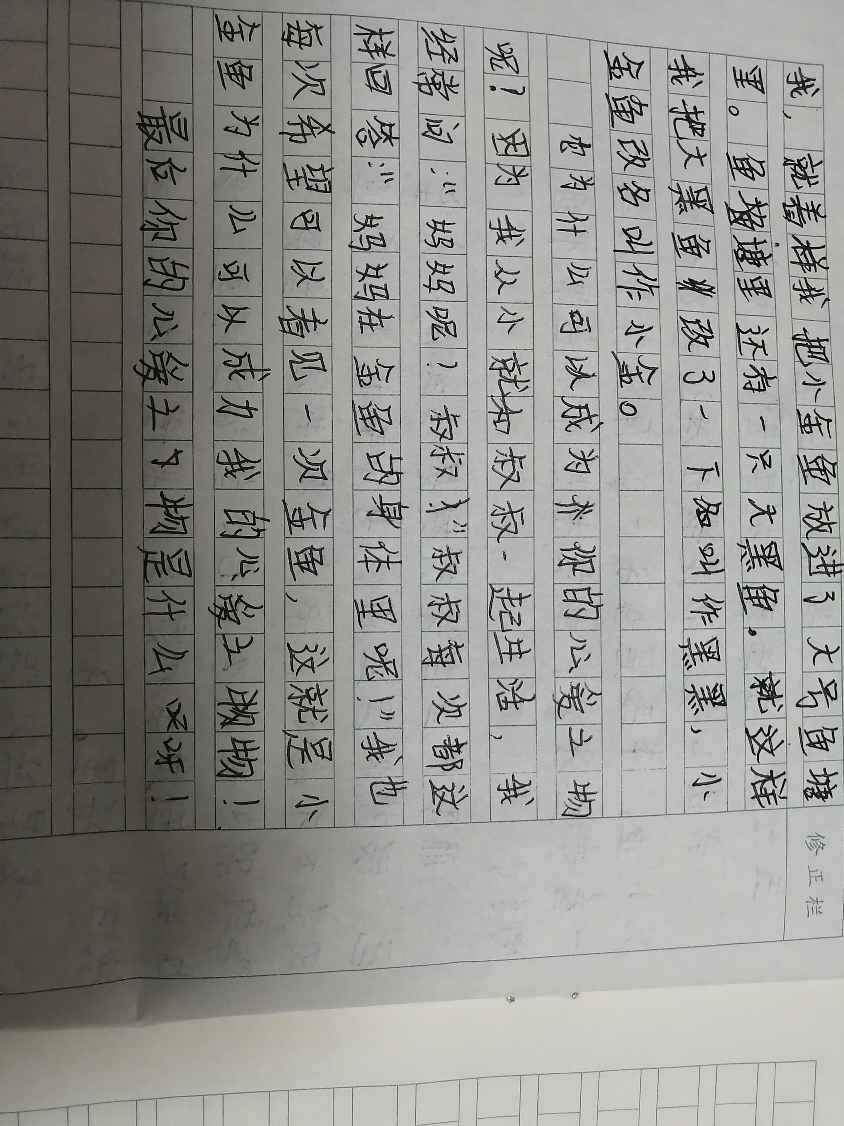 我，就着样我把小金鱼放进了大号鱼塘
里。鱼塘里还有一只大黑鱼。就这样
我把大黑鱼改了一下名叫作黑黑，小
金鱼改名叫作小金。
为什么可以成为你的心爱之物
呢？因为我从小就和叔叔一起生活，我
经常问：“妈妈呢？叔叔！”叔叔每次都这
样回答：“妈妈在金鱼的身体里呢！”我也
每次希望可以看见一次金鱼，这就是小
金鱼为什么可以成为我的心爱之物！
最后你的心爱之物是什么呀！
修正栏